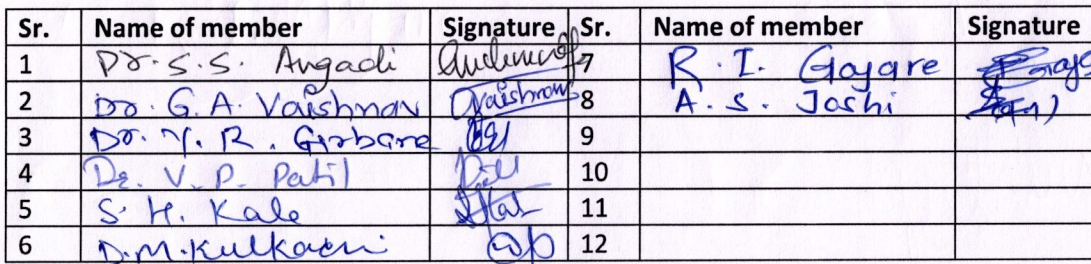 Sr. Name of member Signature Sr. Name of member Signature
1 Dr. S. S. Angadi 7 R. I. Gajare
2 Dr. G. A. Vaishnav Vaishnav 8 A. S. Joshi
3 Dr. Y. R. Girbane 9
4 Dr. V. P. Patil 10
5 S. H. Kale 11
6 D. M. Kulkarni 12